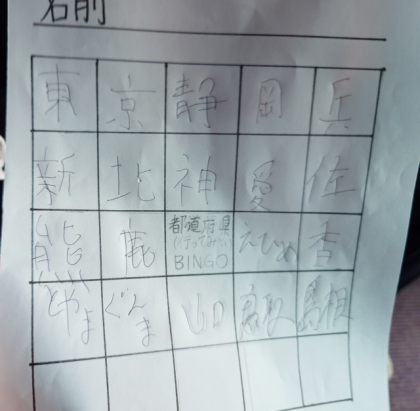 名前
東 京 静 岡 兵
新 北 神 愛 佐
熊 鹿 都道府県 えひめ 香
(行ってみたい)
BINGO
とやま ぐんま 山 島根